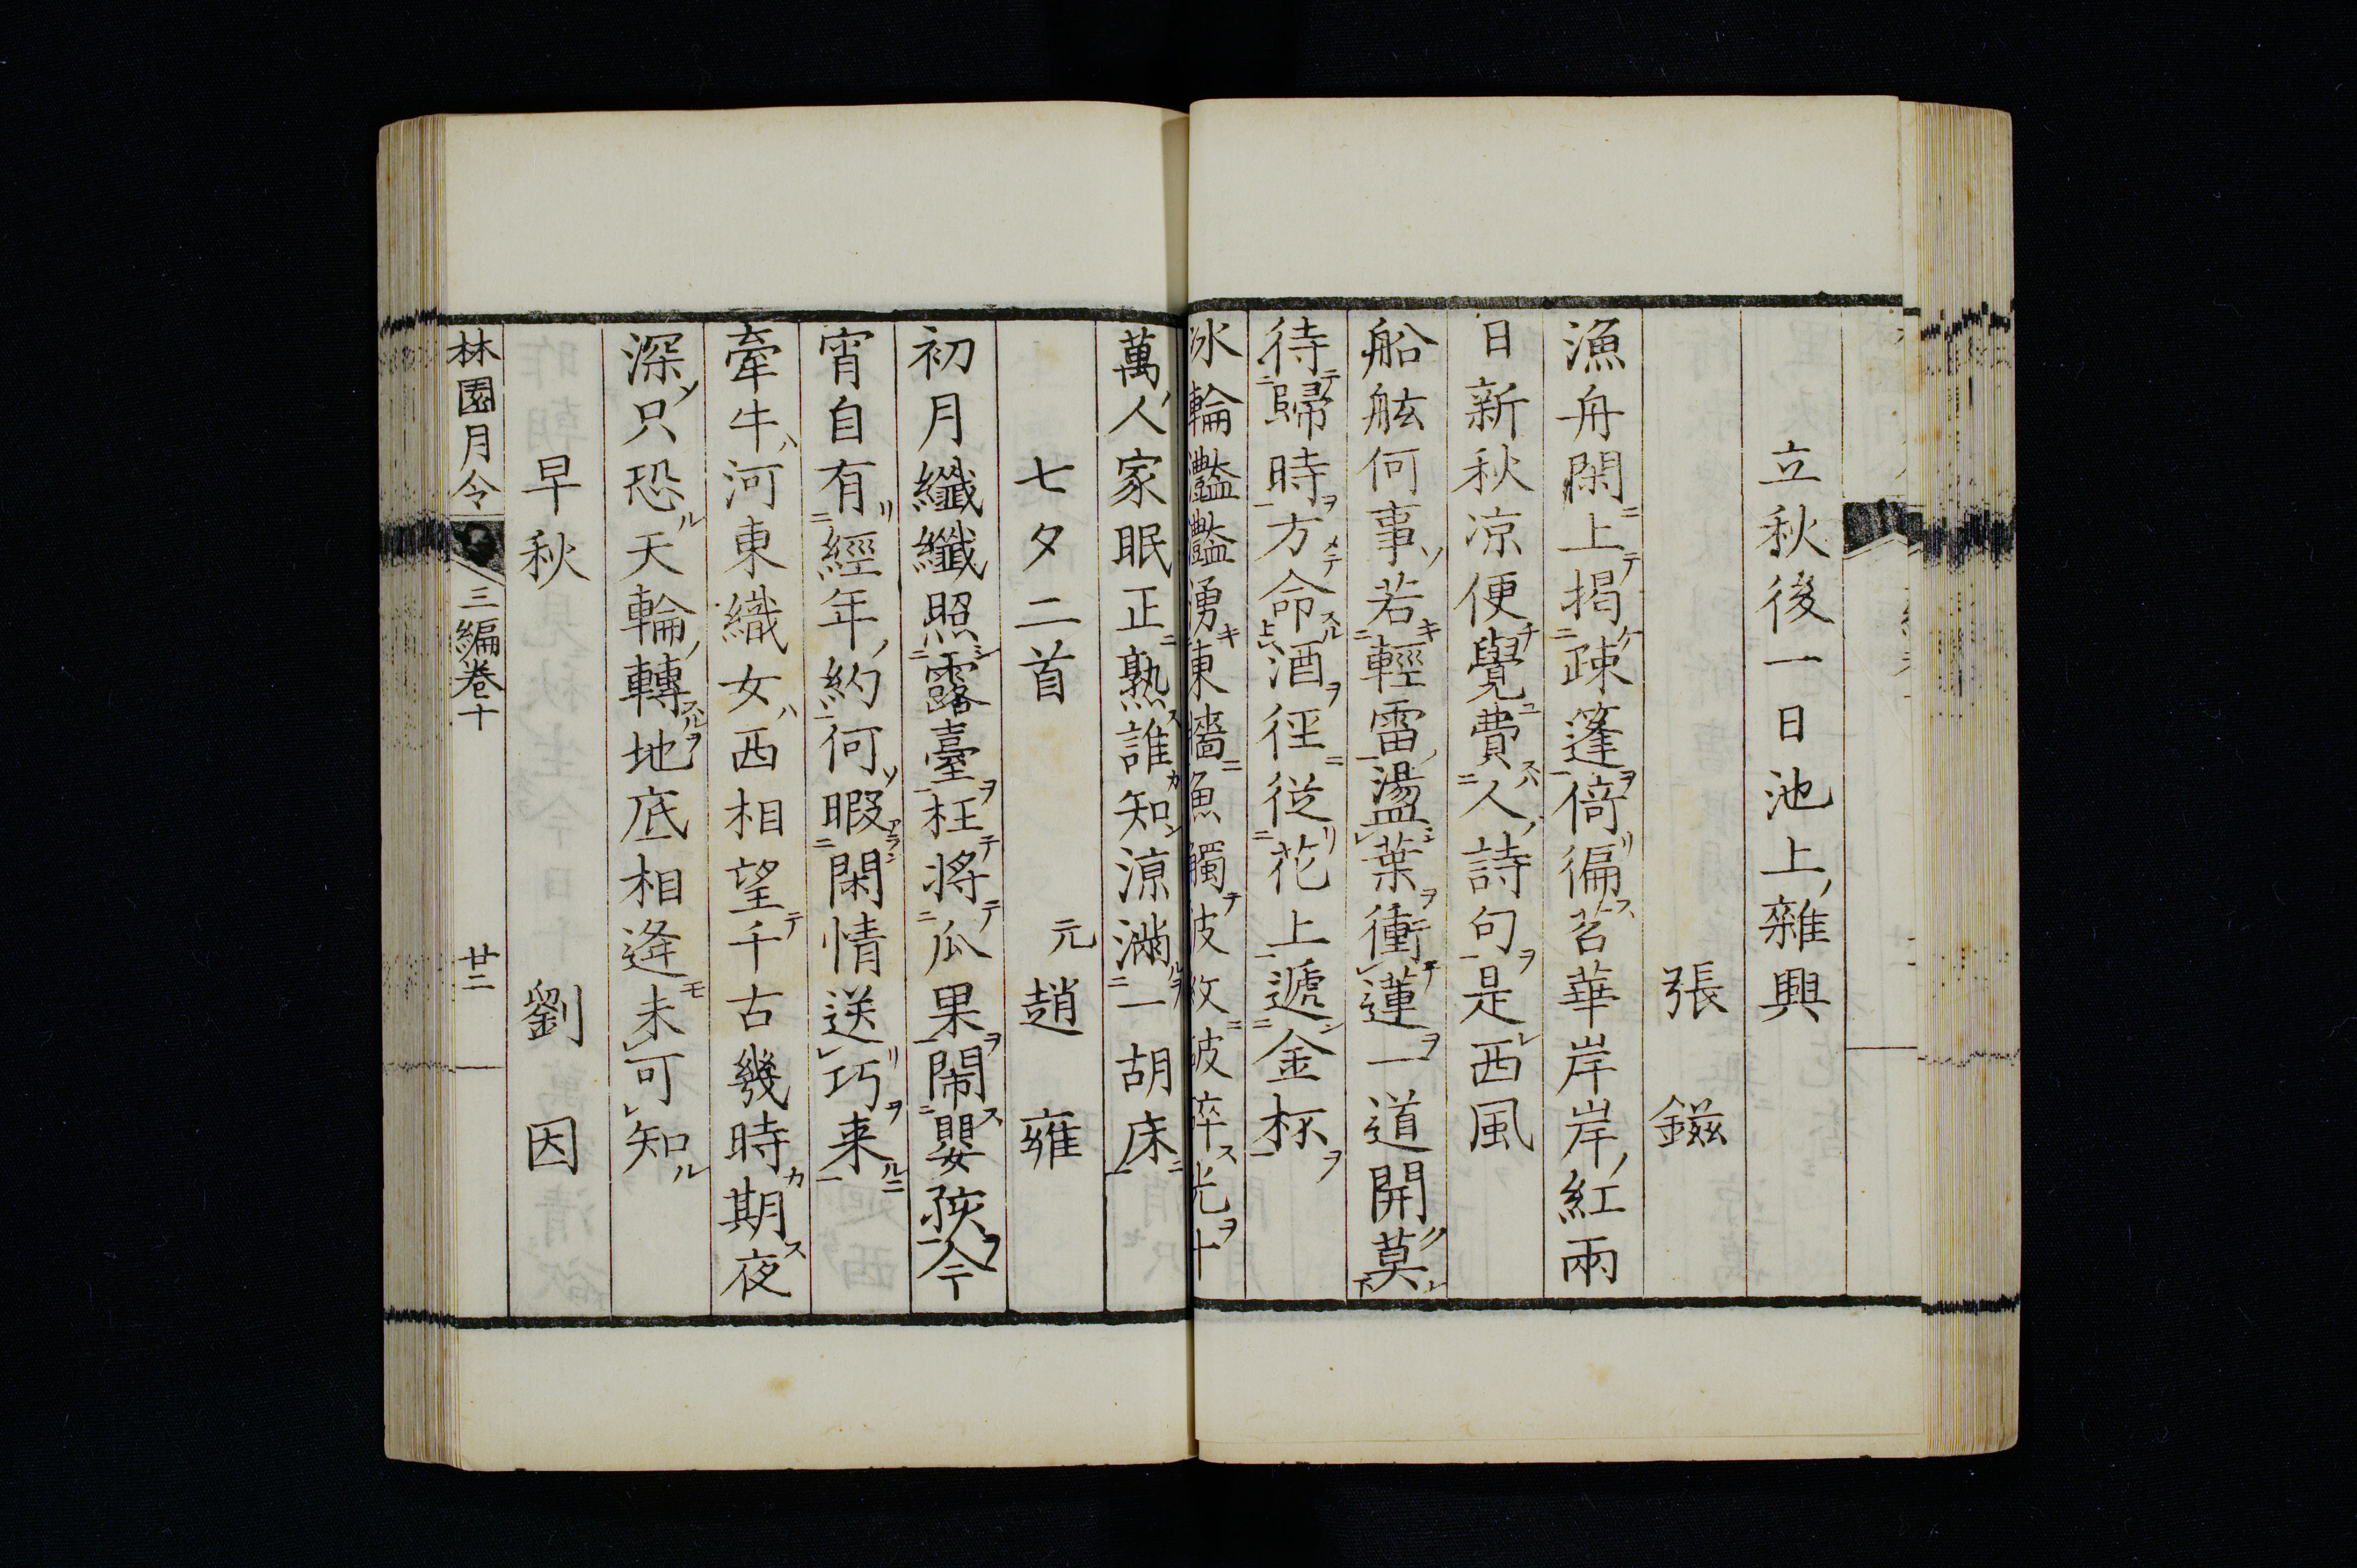 立秋後一日池上雜興
張鎡
漁舟閑上揭疎篷倚徧苕華岸岸紅兩
日新秋凉便覺費人詩句是西風
船舷何事若輕雷盪葉衝蓮一道開莫
待歸時方命酒徑從花上遞金杯
氷輪灩灩湧東墻魚觸波紋破碎光十
萬人家眠正熟誰知涼滿一胡床
七夕二首
元趙雍
初月纖纖照露臺枉將瓜果鬧嬰孩今
宵自有經年約何暇閑情送巧来
牽牛河東織女西相望千古幾時期夜
深只恐天輪轉地底相逢未可知
早秋
劉因
林園月令
三編卷十
廿二